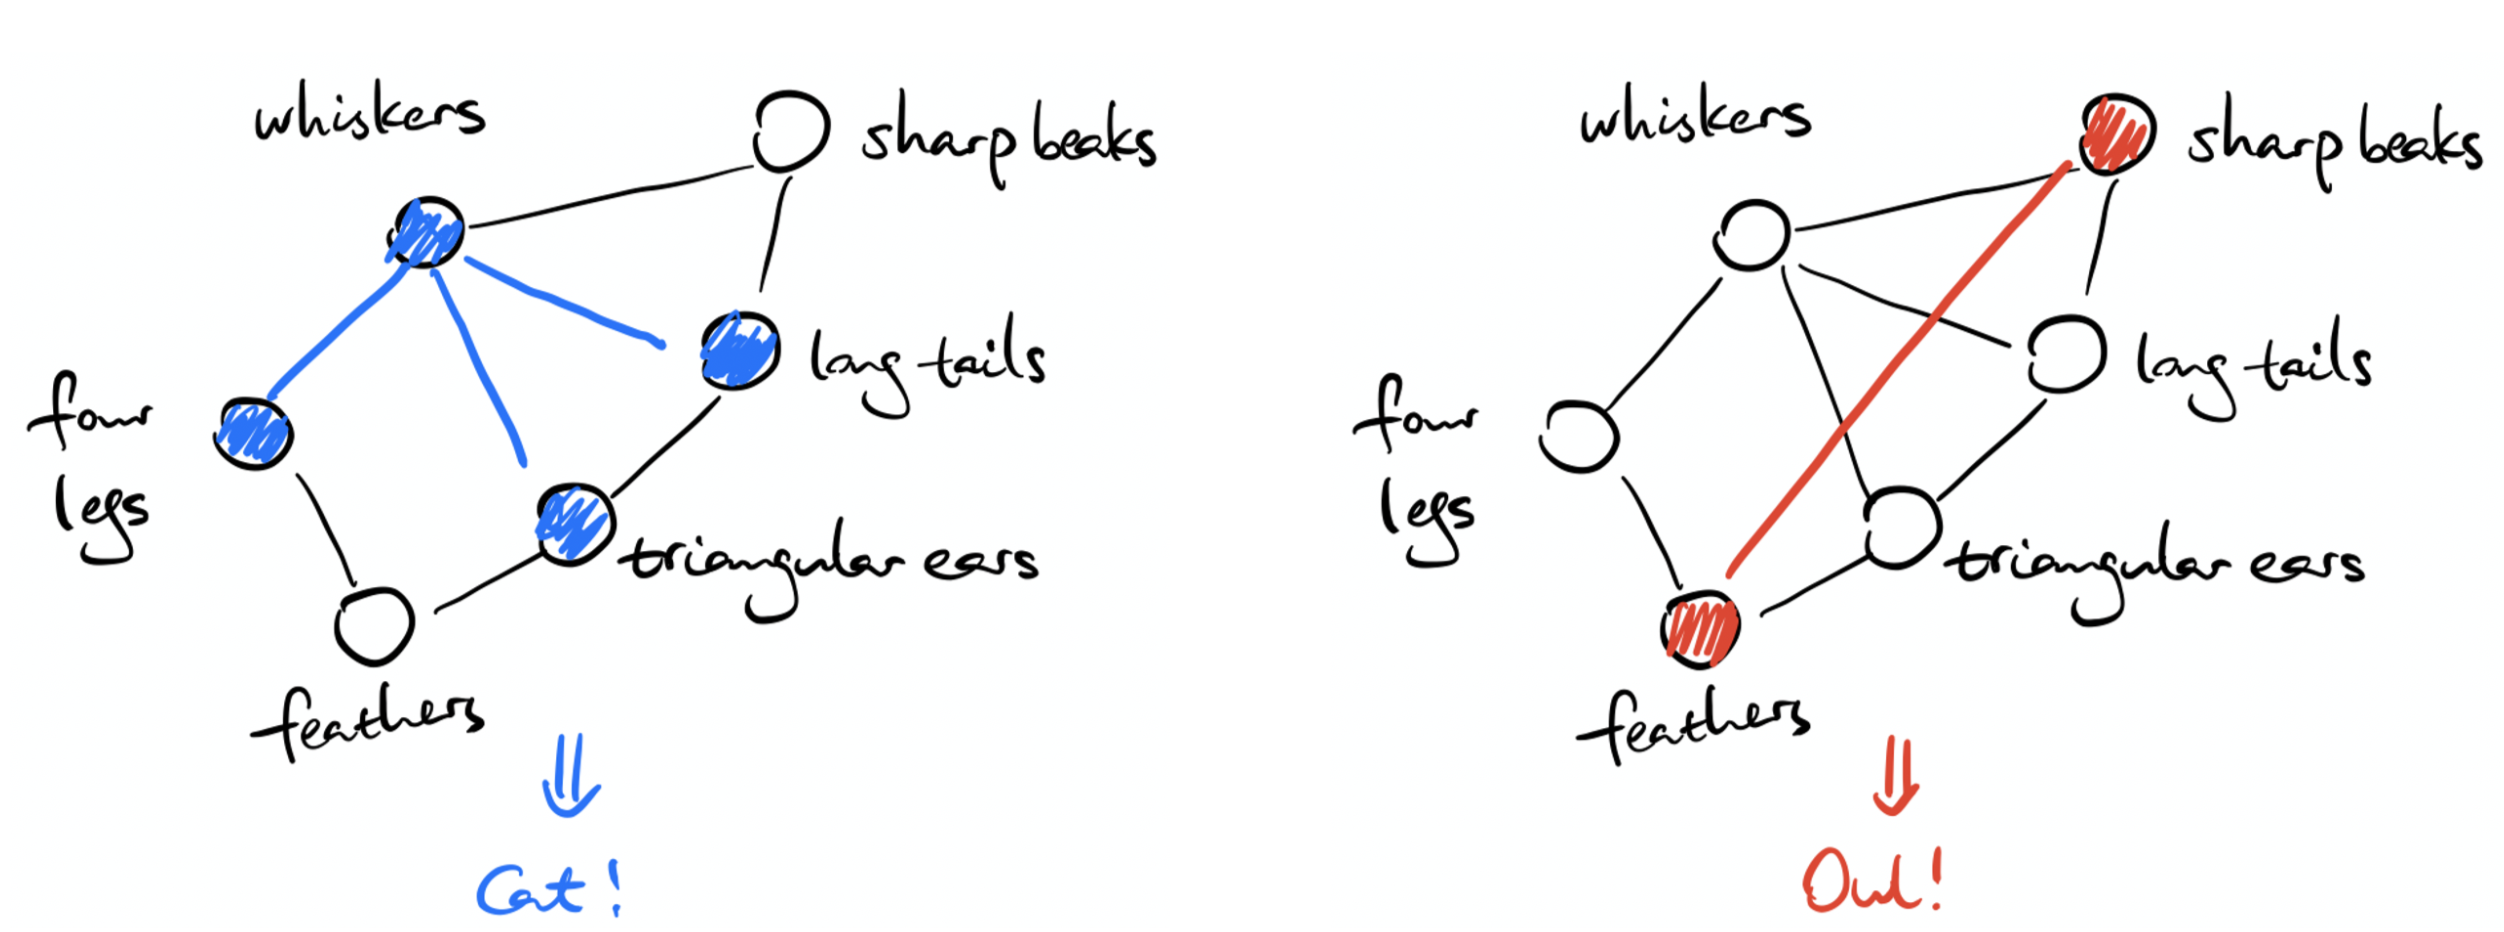 whiskers
sharp beaks
long tails
four
legs
triangular ears
feathers
Cat!
whiskers
sharp beaks
long tails
four
legs
triangular ears
feathers
Owl!